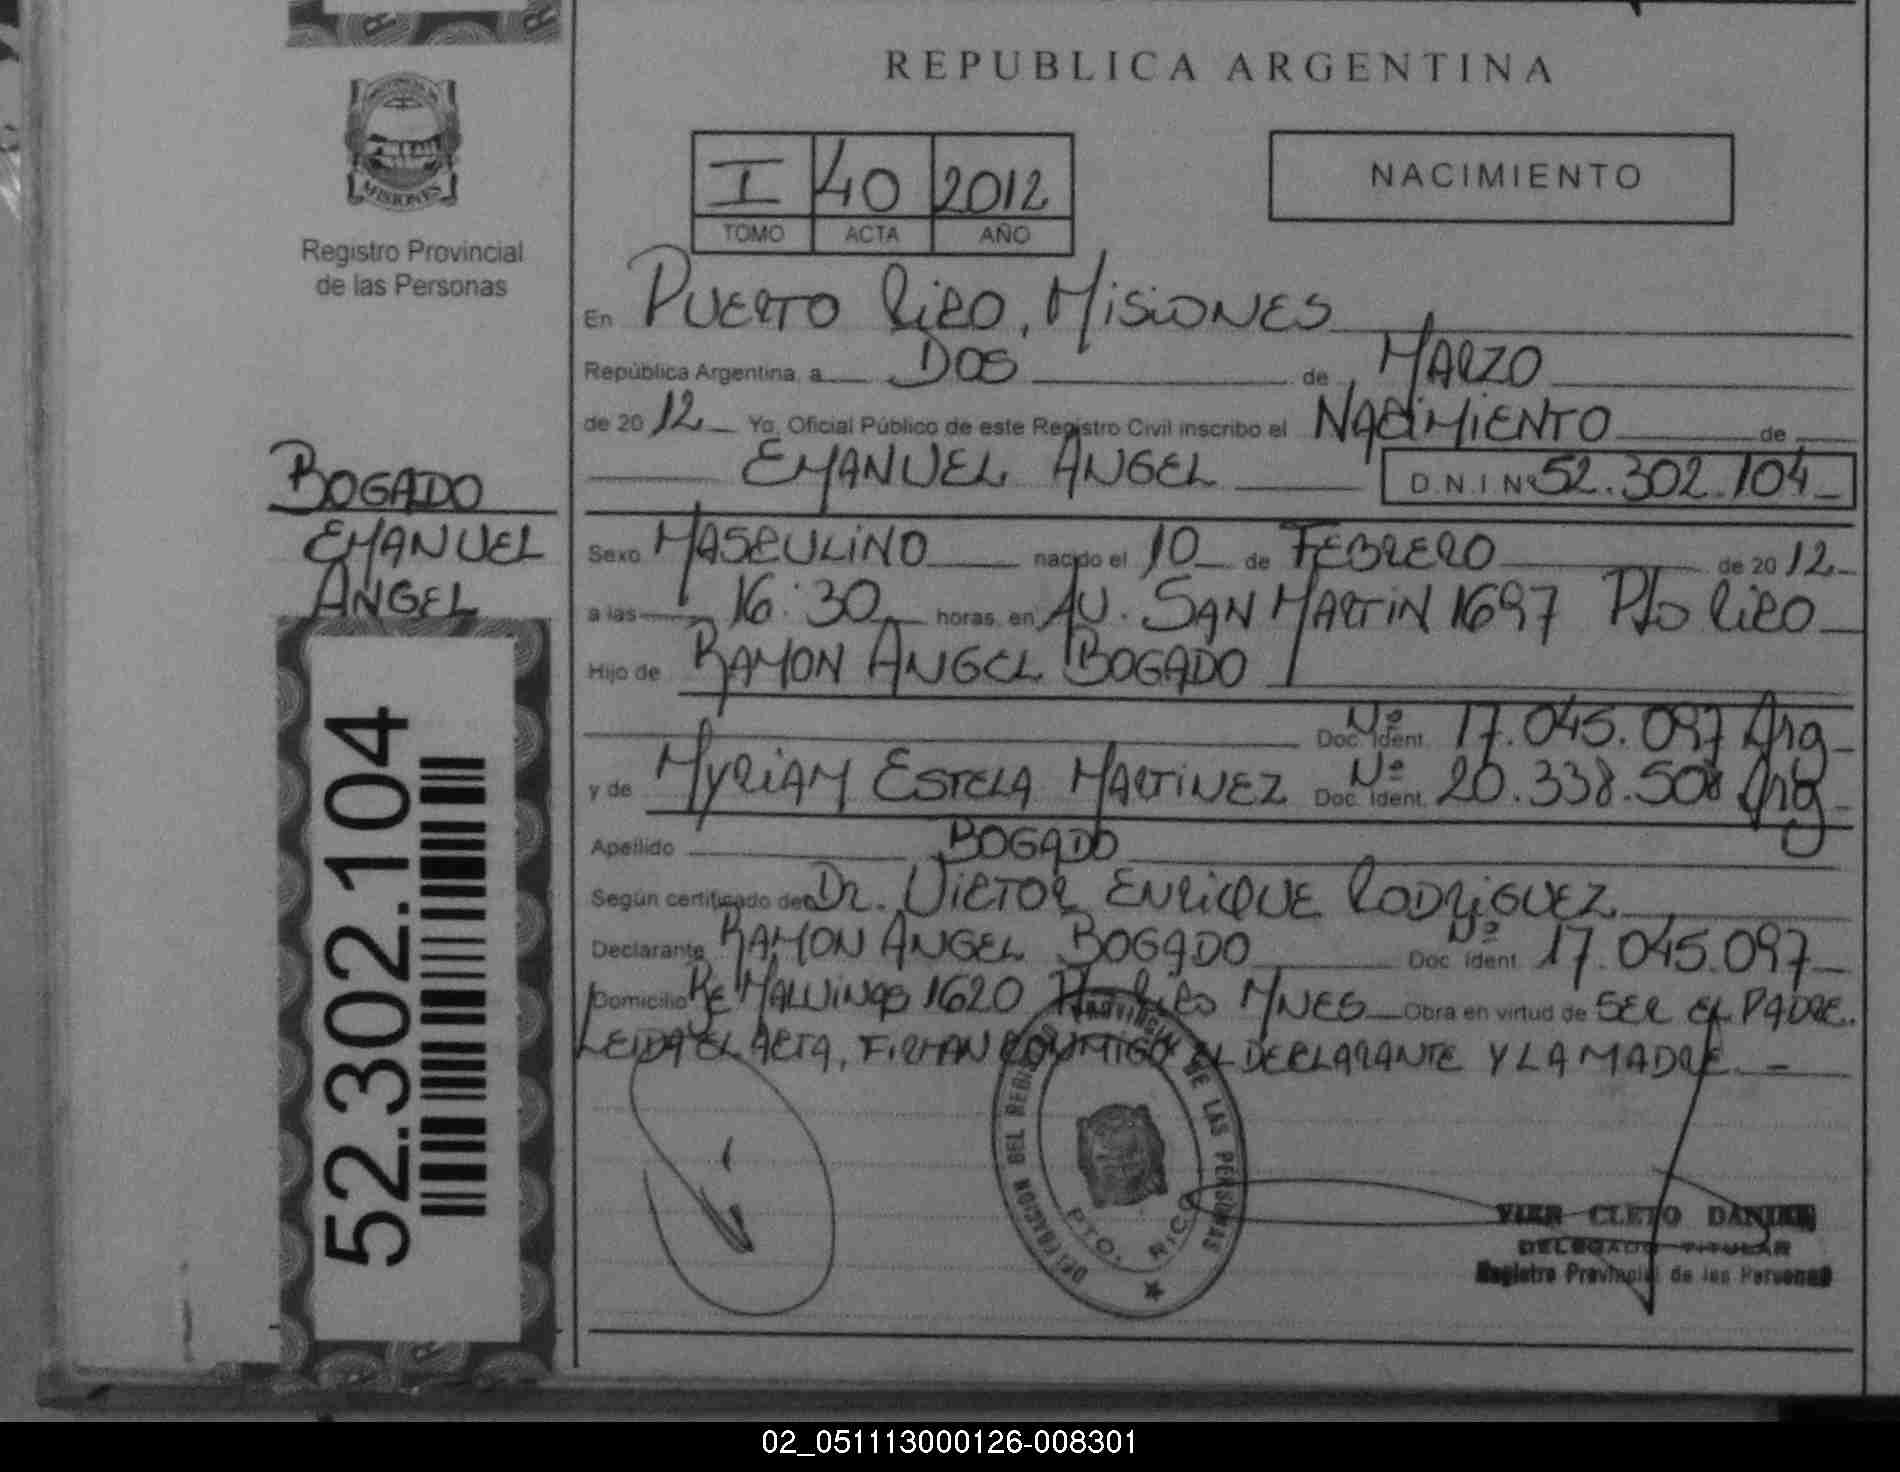 REPUBLICA ARGENTINA
MISIONES
Registro Provincial
de las Personas
I 40 2012
TOMO ACTA AÑO
NACIMIENTO
En PUERTO RICO, MISIONES
República Argentina, a DOS de MARZO
de 2012 Yo, Oficial Público de este Registro Civil inscribo el NACIMIENTO de
EMANUEL ANGEL D.N.I Nº 52.302.104
BOGADO
EMANUEL
ANGEL
Sexo MASCULINO nacido el 10 de FEBRERO de 2012
a las 16:30 horas, en AV. SAN MARTIN 1697 Pto RICO
Hijo de RAMON ANGEL BOGADO
Doc. Ident. Nº 17.045.097 Arg
y de MYRIAM ESTELA MARTINEZ Doc. Ident. Nº 20.338.508 Arg
Apellido BOGADO
Según certificado de Dr. VICTOR ENRIQUE RODRIGUEZ
Declarante RAMON ANGEL BOGADO Doc. Ident. Nº 17.045.097
Domicilio MALVINAS 1620 MNES Obra en virtud de SER EL PADRE.
LEIDA EL ACTA, FIRMAN CONMIGO EL DECLARANTE Y LA MADRE. -
52.302.104
DELEGACION DEL REGISTRO PROVINCIAL DE LAS PERSONAS
PTO. RICO
CLETO
DELEGADO TITULAR
Registro Provincial de las Personas
02_051113000126-008301